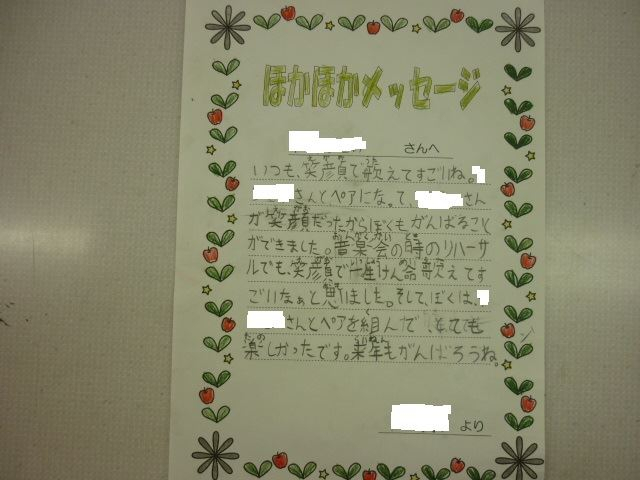 ほかほかメッセージ
さんへ
いつも、笑顔で歌えてすごいね。
さんとペアになって、さん
が笑顔だったからぼくもがんばること
ができました。音楽会の時のリハーサ
ルでも、笑顔で一生けん命歌えてす
ごいなぁと思いました。そして、ぼくは、
さんとペアを組んでとても
楽しかったです。来年もがんばろうね。
より